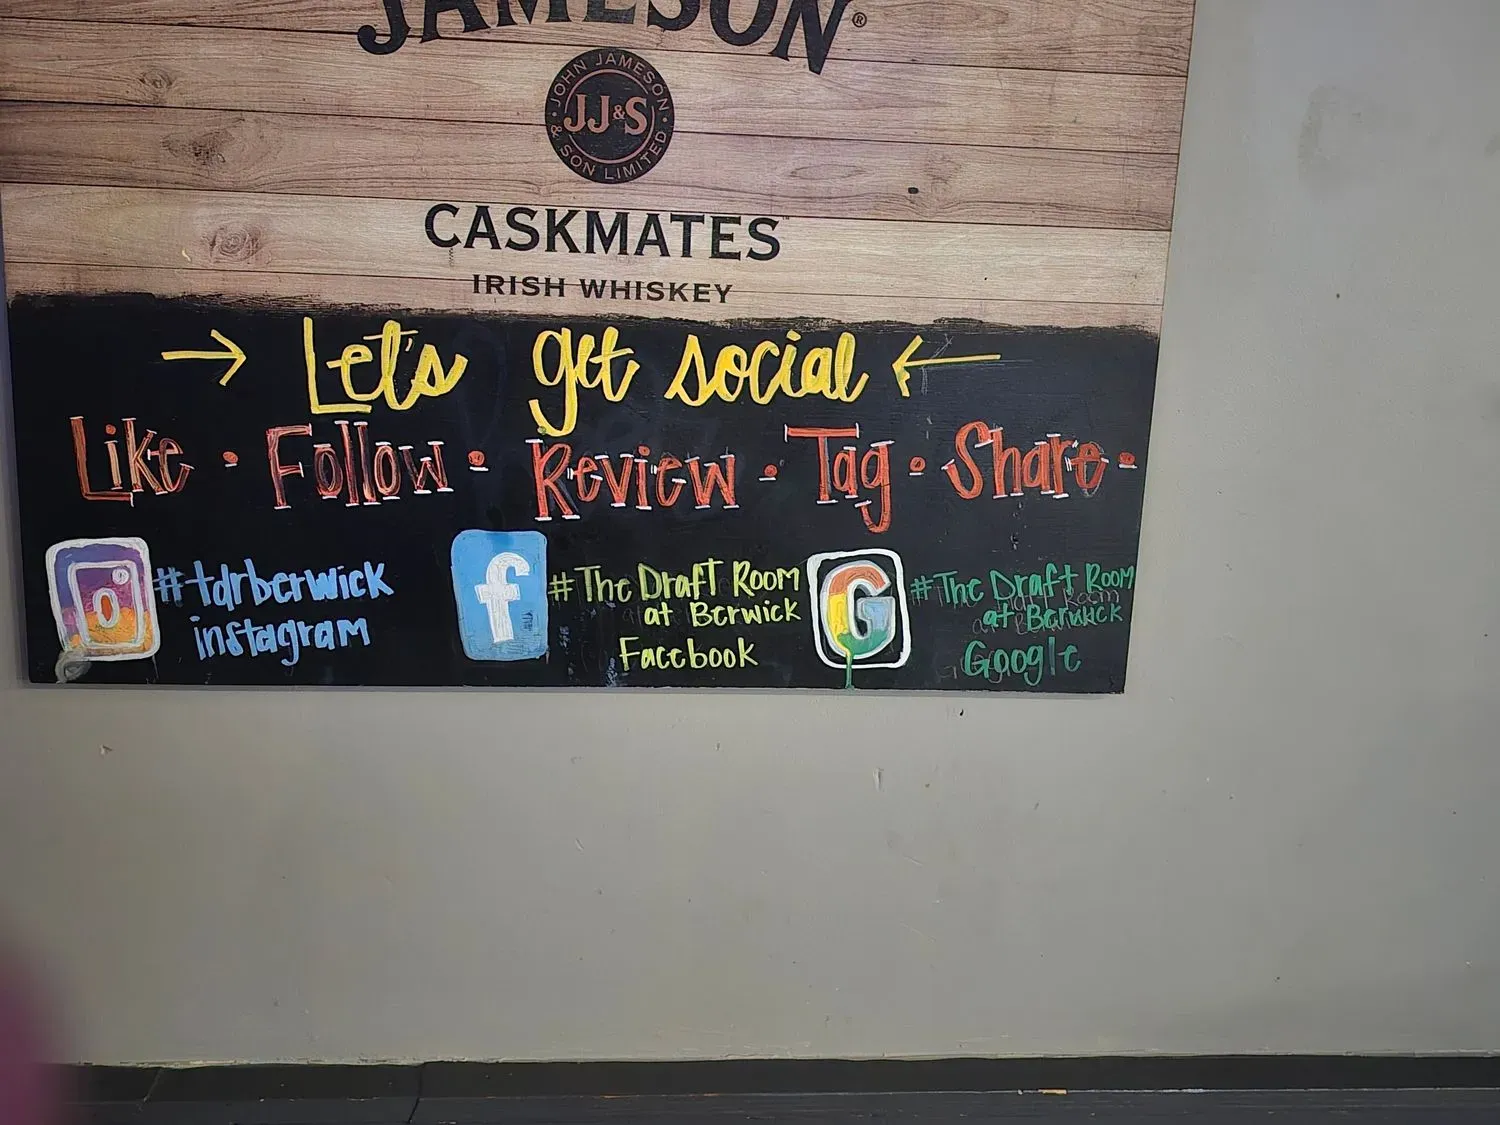 JAMESON®
JOHN JAMESON & SON LIMITED
JJ&S
CASKMATES™
IRISH WHISKEY
→ Let's get social ←
Like · Follow · Review · Tag · Share ·
#tdrberwick
instagram
f
#The Draft Room
at Berwick
Facebook
G
#The Draft Room
at Berwick
Google